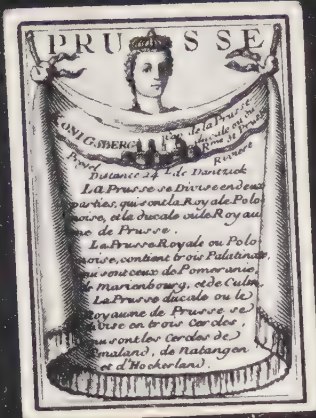 PRUSSE
KONIGSBERG
cap. de la Prusse
ducale ou du
Rme de Prusse
Pregel Riviere
Distance 24 l. de Dantzick
La Prusse se Divise en deux
parties, qui sont la Royale Polo
noise, et la ducale ou le Royau
me de Prusse.
La Prusse Royale ou Polo
noise, contient trois Palatinats,
qui sont ceux de Pomeranie,
de Marienbourg, et de Culm.
La Prusse ducale ou le
Royaume de Prusse se
divise en trois Cercles,
qui sont les Cercles de
Smaland, de Natangen
et d'Hockerland.